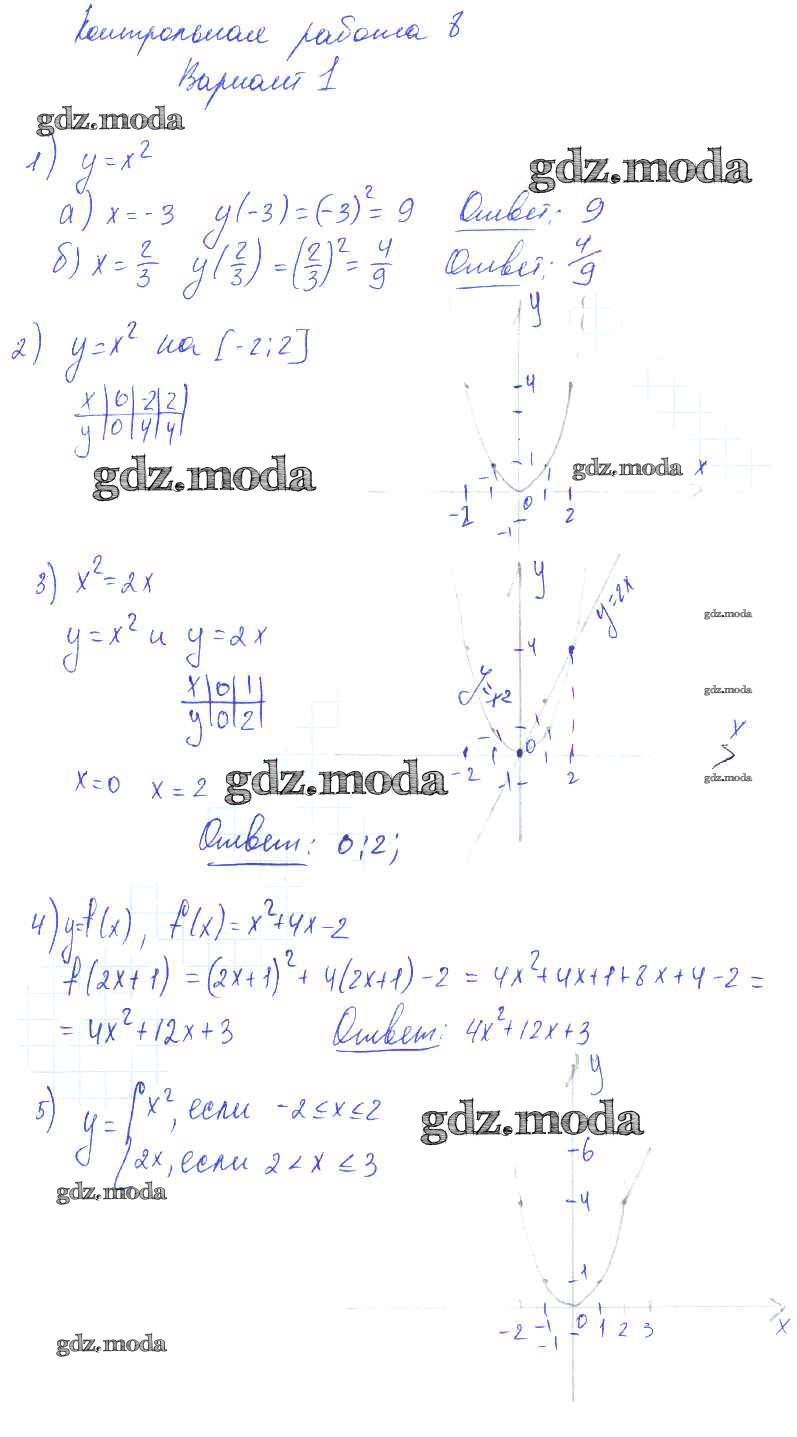 Контрольная работа 8
Вариант 1
gdz.moda
1) y=x²
gdz.moda
а) x=-3 y(-3)=(-3)²=9 Ответ: 9
б) x=2/3 y(2/3)=(2/3)²=4/9 Ответ: 4/9
y
2) y=x² на [-2;2]
4
x|0|-2|2|
y|0|4|4|
gdz.moda
1
gdz.moda x
-2 -1 0 1 2
-1
3) x²=2x
y
y=2x
gdz.moda
y=x² и y=2x
4
x|0|1|
y|0|2|
y=x2
gdz.moda
1
x
-2 -1 0 1 2
-1
x=0 x=2
gdz.moda
gdz.moda
Ответ: 0;2;
4) y=f(x), f(x)=x²+4x-2
f(2x+1)=(2x+1)²+4(2x+1)-2=4x²+4x+1+8x+4-2=
=4x²+12x+3 Ответ: 4x²+12x+3
y
5) y={x², если -2≤x≤2
2x, если 2<x≤3
gdz.moda
gdz.moda
6
4
1
-2 -1 0 1 2 3 x
-1
gdz.moda